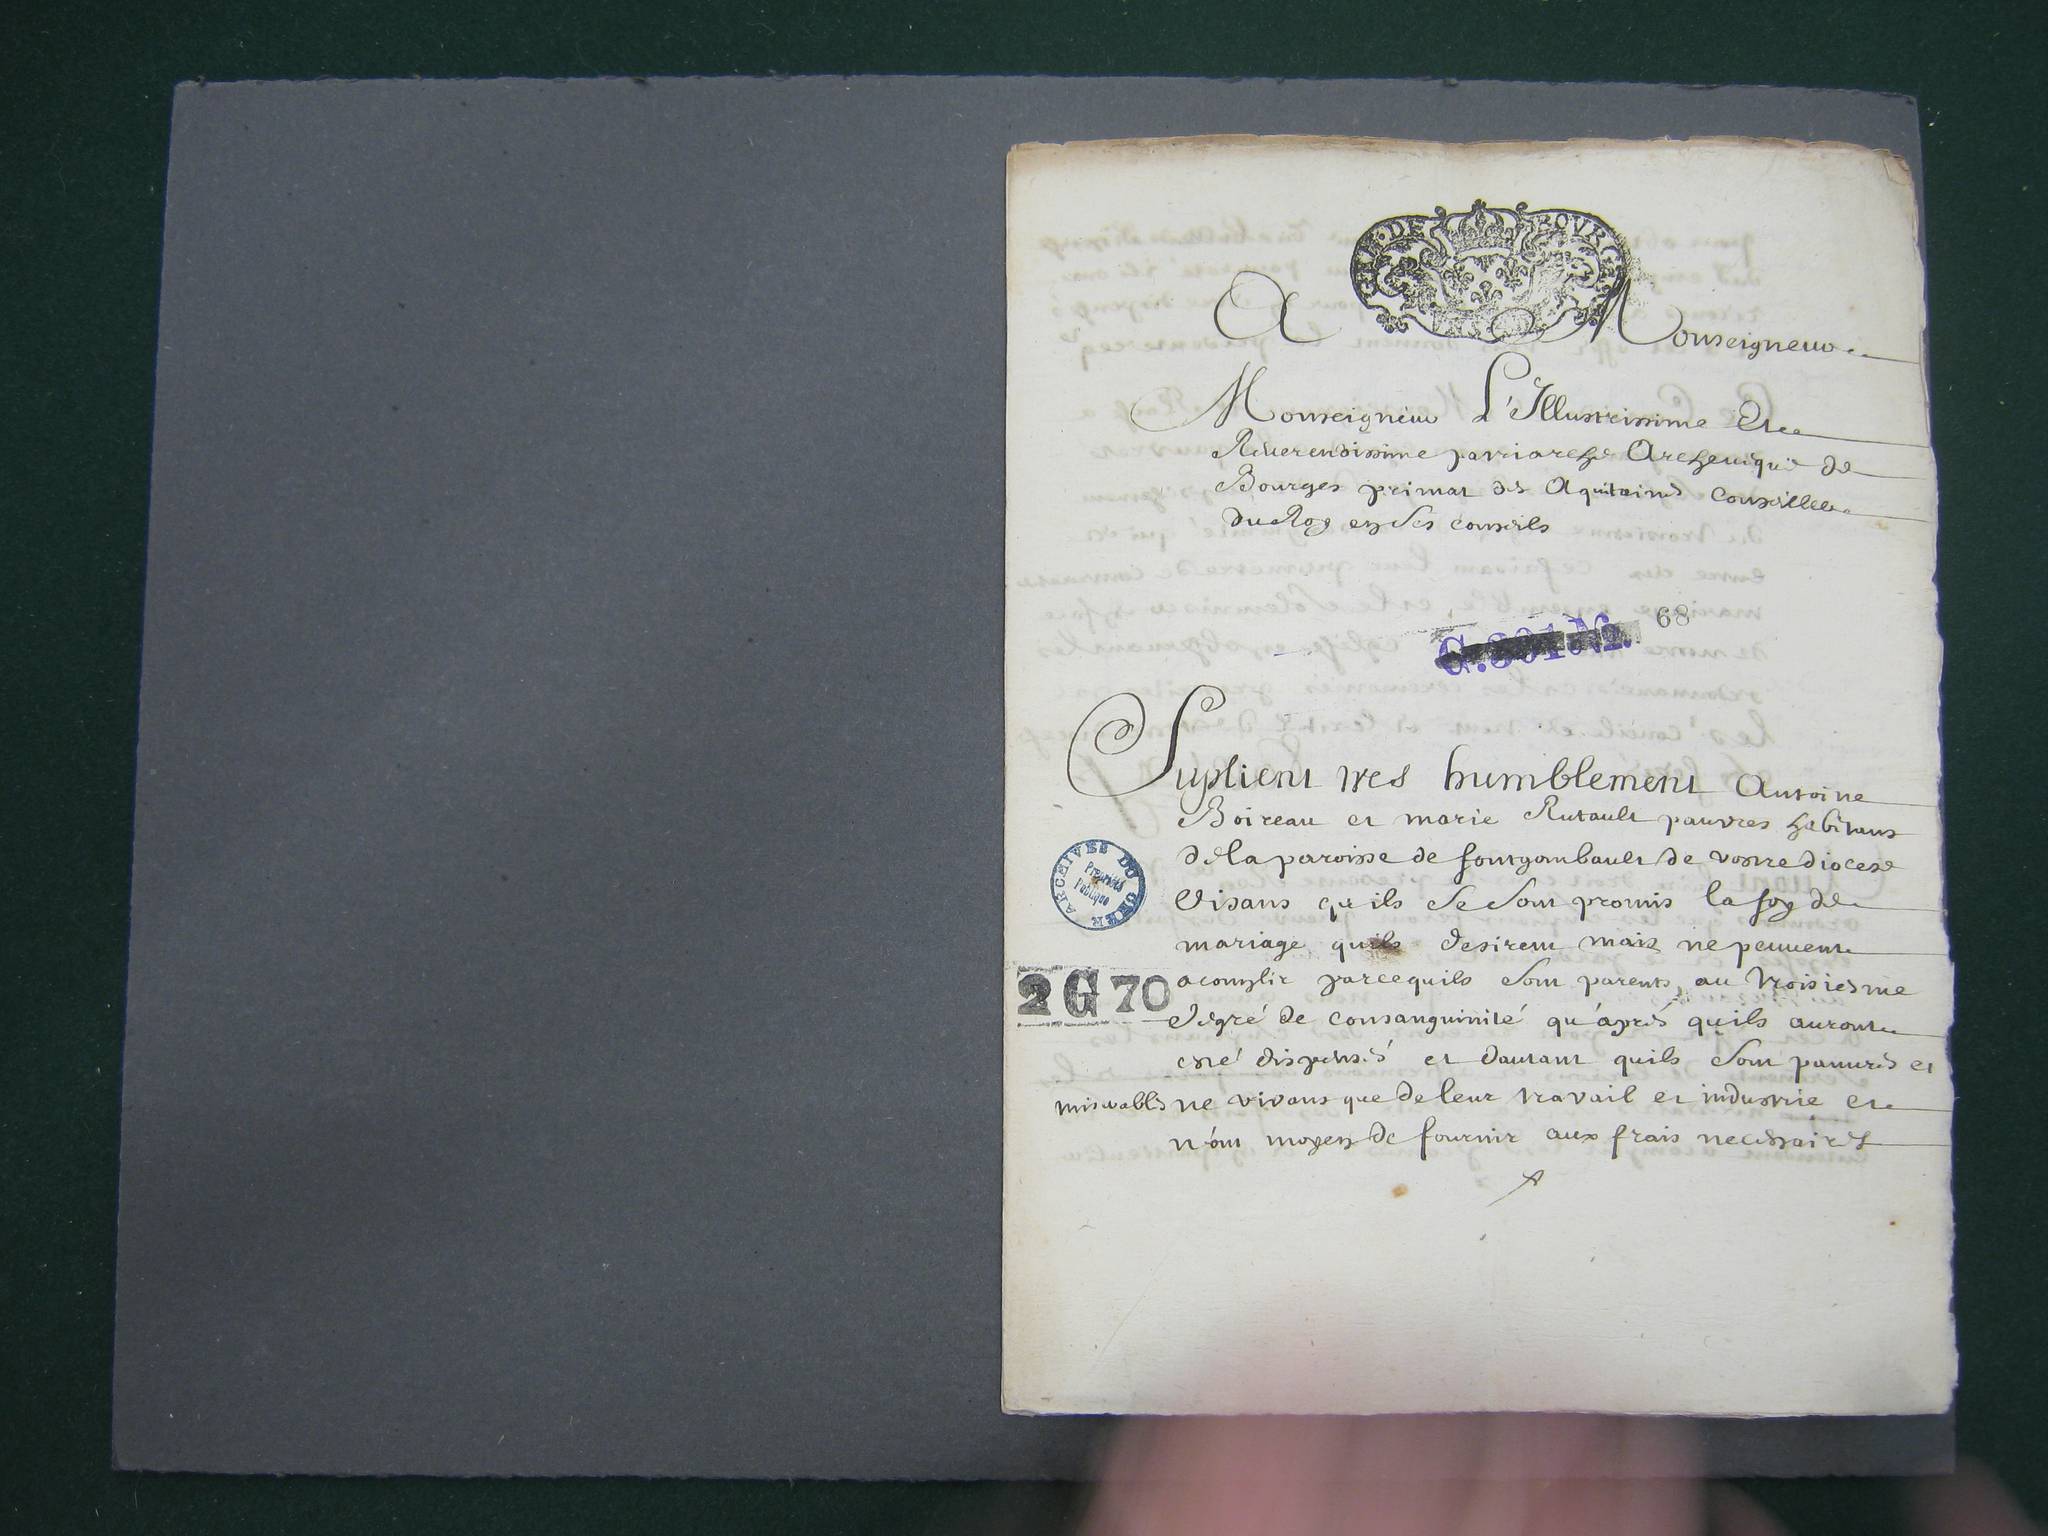 GEN·DE BOVRGES
A Monseigneur
Monseigneur L'Illustrissime Et
Reverendissime patriarche Archeveque de
Bourges primat des Aquitaines Conseiller
du Roy en Ses conseils
G.801 N. 68
Suplient tres humblement Antoine
Boireau et marie Rutault pauvres habitans
de la paroisse de fontgombault de vostre diocese
Disans qu'ils se sont promis la foy de
mariage quils desirent mais ne peuvent
acomplir parcequils sont parents, au troisiesme
degré de consanguinité qu'áprés quils auront
esté dispensés et dautant quils sont pauvres et
miserables ne vivans que de leur travail et industrie et
n'ont moyen de fournir aux frais necessaires
ARCHIVES DU CHER
Propriété
Publique
2 G 70